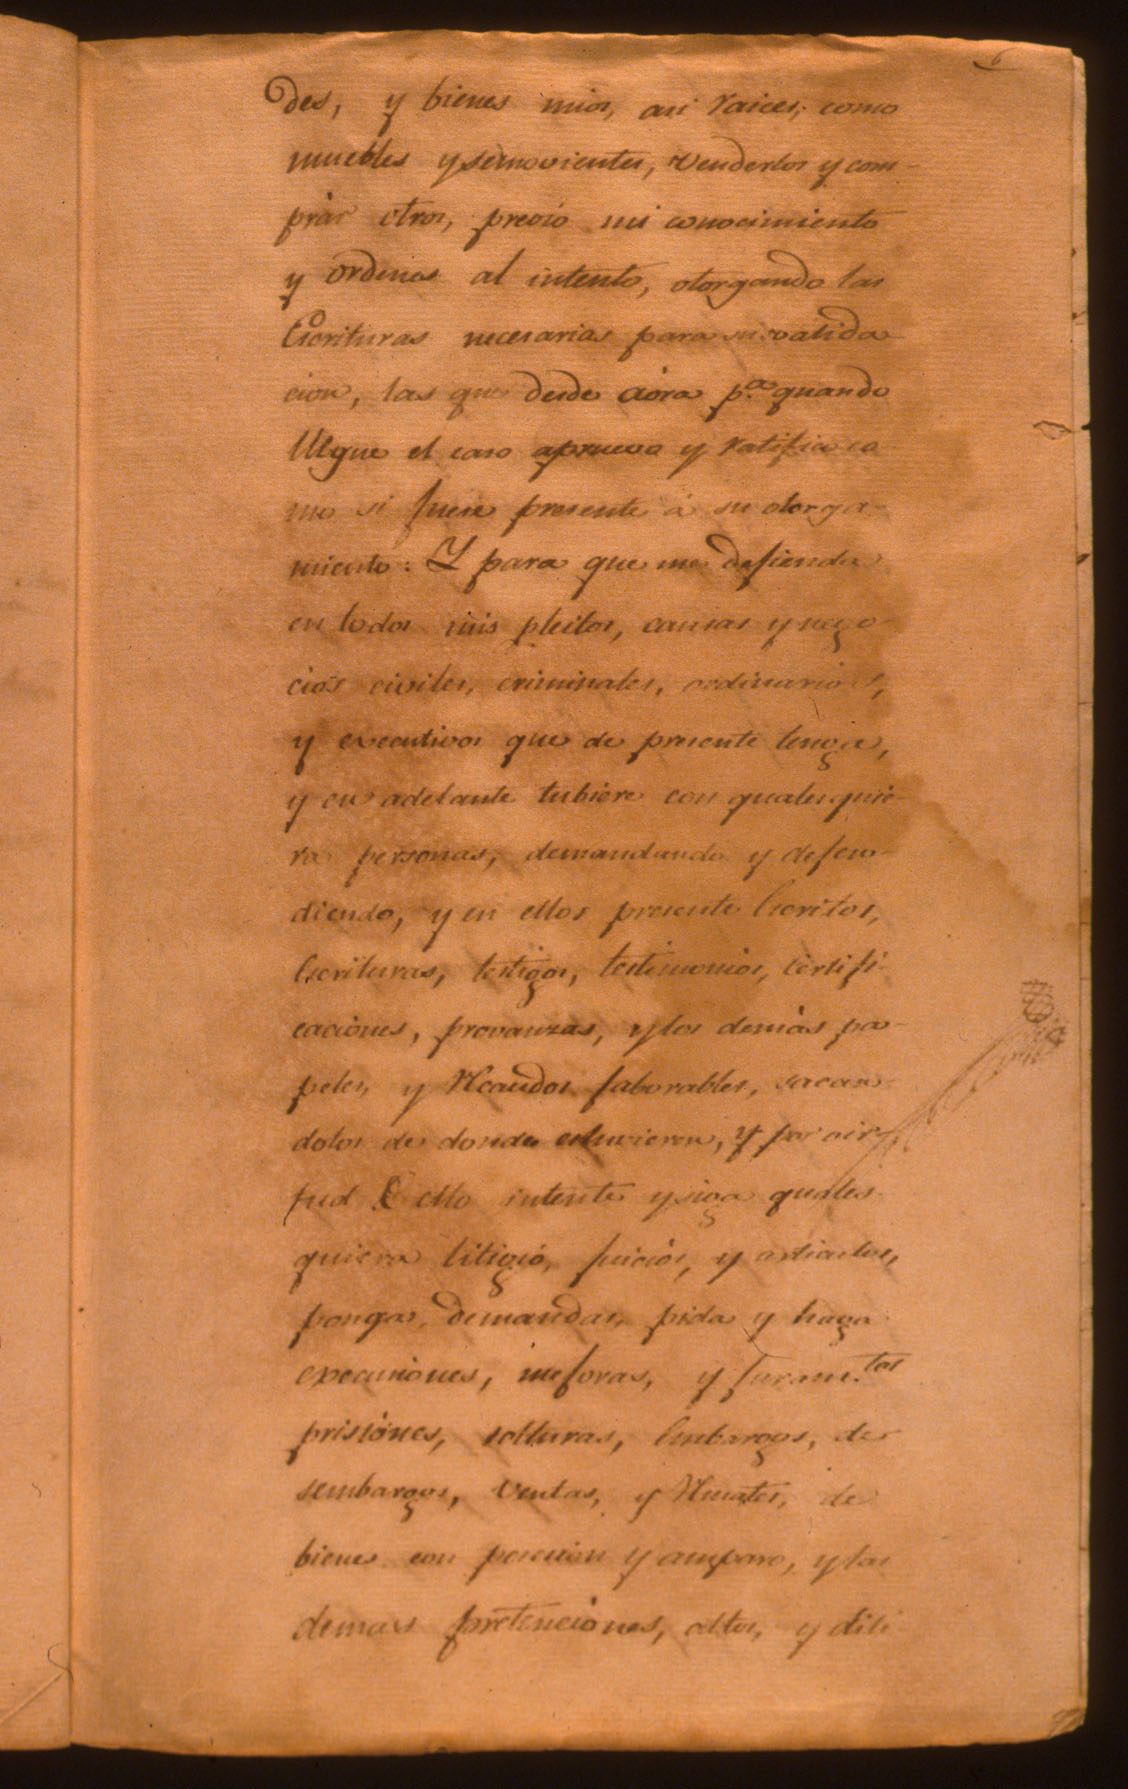 6
des, y bienes mios, asi raices, como
muebles y semovientes, venderlos y com-
prar otros, previo mi conocimiento
y ordenes al intento, otorgando las
Escrituras necesarias para su valida
cion, las que desde aora p.ª quando
llegue el caso apruevo y ratifico co
mo si fuese presente á su otorga-
miento: Y para que me defienda
en todos mis pleitos, causas y nego-
cios civiles, criminales, ordinarios,
y executivos que de presente tenga,
y en adelante tubiere con qualesquie-
ra personas, demandando y defen-
diendo, y en ellos presente Escritos,
Escrituras, testigos, testimonios, certifi-
caciones, provanzas, y los demás pa-
peles, y Rcaudos faborables, sacan-
dolos de donde estuvieren, y por vir-
tud de ello intente y siga quales-
quiera litigió, juicios, y articulos,
ponga demandas, pida y haga
execuciones, mejoras, y juram.tos
prisiónes, solturas, Embargos, de-
sembargos, ventas, y Rmates, de
bienes con posecion y amparo, y las
demas pretenciónes, actos, y dili